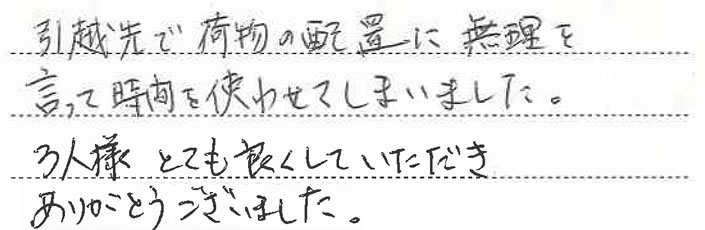 引越先で荷物の配置に無理を
言って時間を使わせてしまいました。
3人様 とても良くしていただき
ありがとうございました。